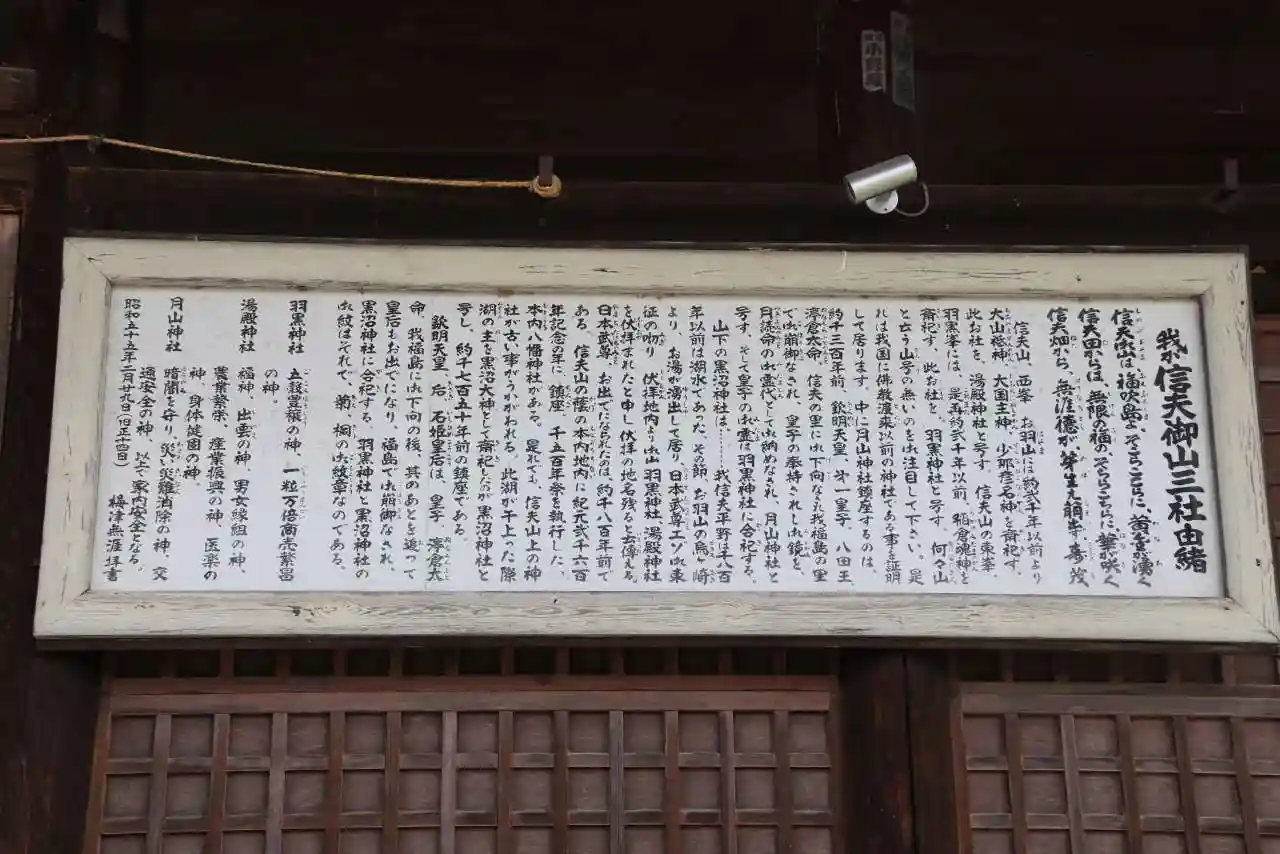 我が信夫御山三社由緒
信夫山は、福吹島よ、そらこらに、黄金湧く
信夫田からは、無限の福の、そらこちらに、華咲く
信夫畑から、無涯億が芽生え萠す
信夫山、西峯、お羽山には約弐千年以前より
大山祗神、大国主神、少那彦名神を斎祀す、
此お社を、湯殿神社と号す、信夫山の東峯、
羽黒峯には、是再約弐千年以前、稲倉魂神を
斎祀す、此お社を、羽黒神社と号す、何々山
と云う山号の無いのを御注目して下さい、是
れは我国に佛教渡来以前の神社である事を証明
して居ります、中に月山神社鎮座するのは、
約千三百年前、欽明天皇、第一皇子、八田王
渟倉太命、信夫の里に御下向なされ我福島の里
で御崩御なされ、皇子の奉持されし御鏡を、
月読命の御霊代として御納めなされ、月山神社と
号す、そして皇子の御霊は羽黒神社に合祀する、
山下の黒沼神社は……我信夫平野は千八百
年以前は湖水であった、その節、お羽山の烏ヶ崎
より、お湯が湧出して居り、日本武尊エゾ御東
征の砌り、伏拝地内より御山羽黒神社、湯殿神社
を伏拝まれたと申し伏拝の地名残ると云傳える、
日本武尊、お出でになられたのは、約千八百年前で
ある、信夫山の蔭の本内地内に紀元弐千六百
年記念の年に、鎮座、千五百年祭を執行した、
本内八幡神社がある。是れでも、信夫山上の神
社が古い事がうかがわれる、此湖が干上った際
湖の主を黒沼大神として斎祀したが黒沼神社と
号し、約千七百五十年前の鎮座である。
欽明天皇、后、石姫皇后は、皇子、渟倉太
命、我福島に御下向の後、其のあとを追って
皇后もお出でになり、福島に御崩御なされ、
黒沼神社に合祀する、羽黒神社と黒沼神社の
御紋はそれで、菊、桐の御紋章なのである。
羽黒神社　五穀豊穣の神、一粒万倍商売繁昌
の神。
湯殿神社　福神、出雲の神、男女縁組の神、
農業繁栄、産業振興の神、医薬の
神、身体健固の神
月山神社　暗闇を守り、災い災難消除の神、交
通安全の神、以上で家内安全となる。
昭和五十五年二月廿九日(旧正十四日)　梅津無涯拝書